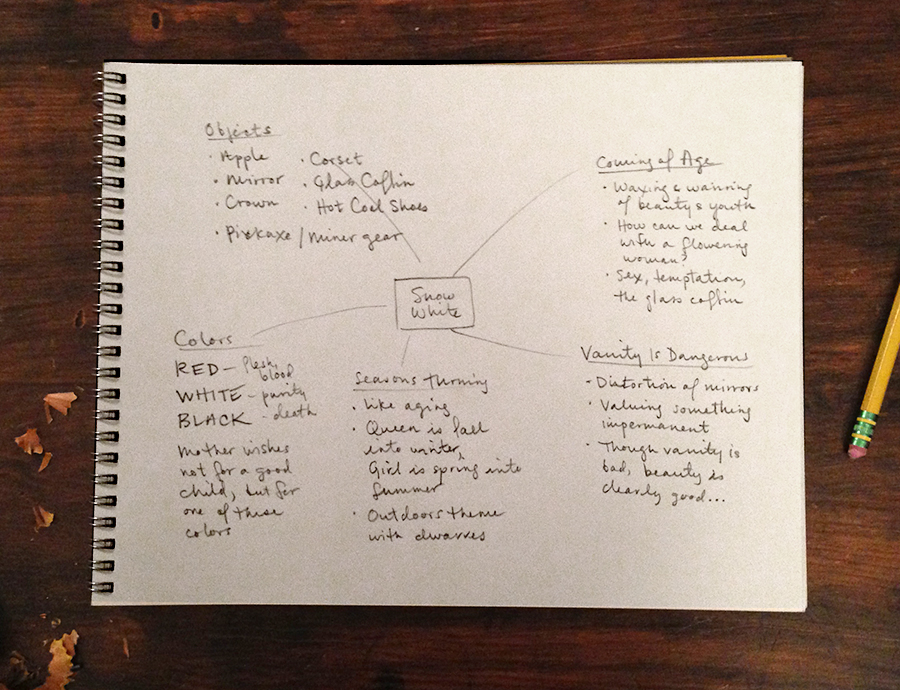 Objects
• Apple
• Mirror
• Crown
• Pickaxe / miner gear
• Corset
• Glass Coffin
• Hot Coal Shoes
Coming of Age
• Waxing & wanning
of beauty & youth
• How can we deal
with a flowering
woman?
• Sex, temptation,
the glass coffin
Snow
White
Colors
RED – flesh,
blood
WHITE – purity
BLACK – death
Mother wishes
not for a good
child, but for
one of these
colors
Seasons turning
• Like aging
• Queen is fall
into winter,
Girl is spring into
Summer
• Outdoors theme
with dwarves
Vanity Is Dangerous
• Distortion of mirrors
• Valuing something
impermanent
• Though vanity is
bad, beauty is
clearly good...